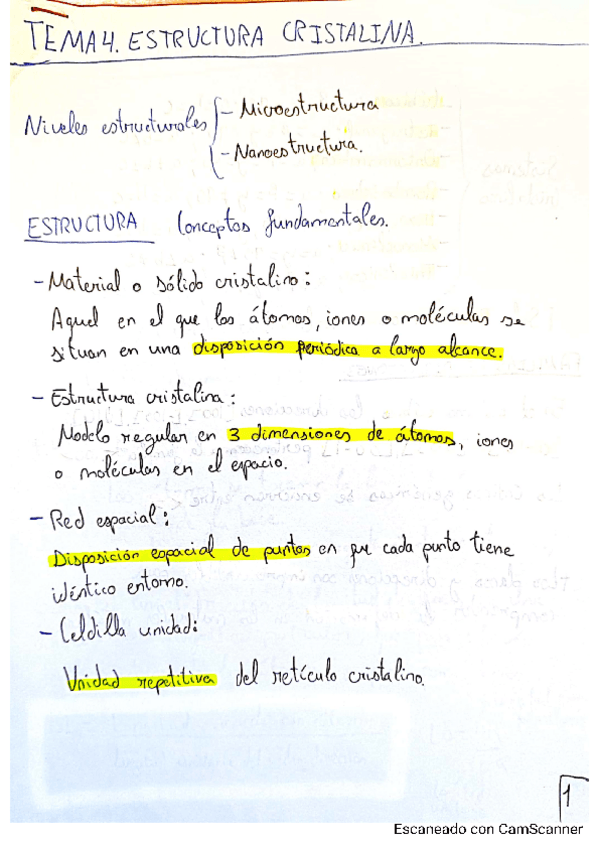 TEMA 4. ESTRUCTURA CRISTALINA.
Niveles estructurales
- Microestructura
- Nanoestructura.
ESTRUCTURA Conceptos fundamentales.
- Material o sólido cristalino:
Aquel en el que los átomos, iones o moléculas se
situan en una disposición periódica a largo alcance.
- Estructura cristalina:
Modelo regular en 3 dimensiones de átomos, iones
o moléculas en el espacio.
- Red espacial:
Disposición espacial de puntos en que cada punto tiene
idéntico entorno.
- Celdilla unidad:
Unidad repetitiva del retículo cristalino.
1
Escaneado con CamScanner